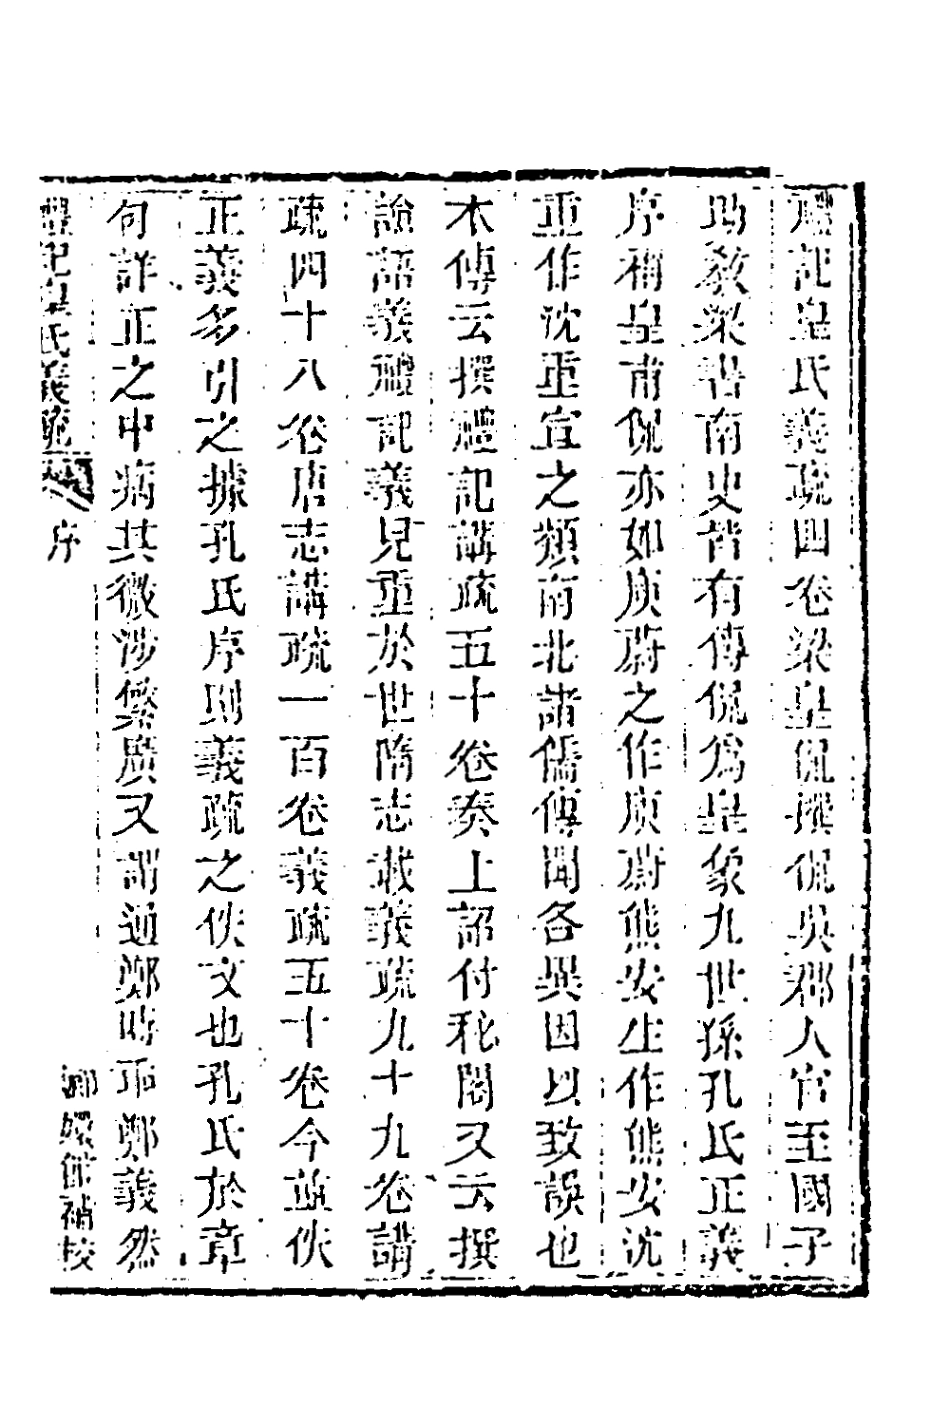 禮記皇氏義疏四卷梁皇侃撰侃吳郡人官至國子
助教梁書南史皆有傳侃為皇象九世孫孔氏正義
序稱皇甫侃亦如庾蔚之作庾蔚熊安生作熊安沈
重作沈重宣之類南北諸儒傳聞各異因以致誤也
本傳云撰禮記講疏五十卷奏上詔付秘閣又云撰
論語義禮記義見重於世隋志載義疏九十九卷講
疏四十八卷唐志講疏一百卷義疏五十卷今並佚
正義多引之據孔氏序則義疏之佚文也孔氏於章
句詳正之中病其微涉繁廣又謂通鄭時乖鄭義然
禮記皇氏義疏 序 嫏嬛館補校